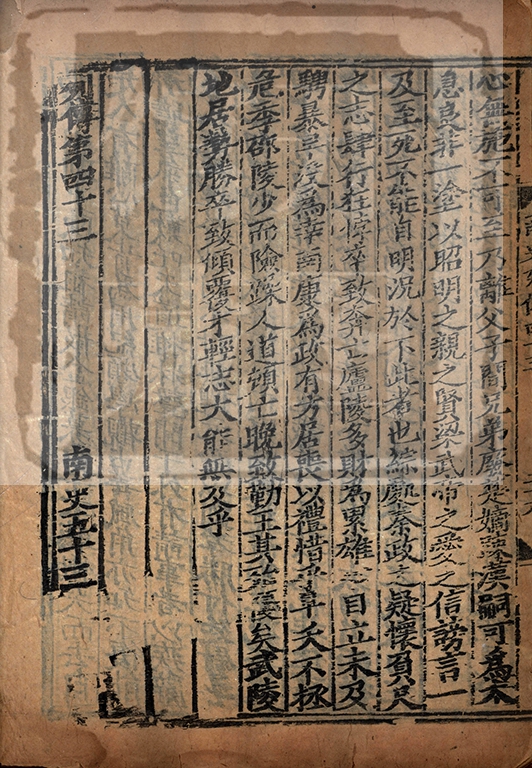 心無施不可至乃離父子間兄弟廢楚嫡疎漢嗣可為太
息良非一塗以昭明之親之賢梁武帝之愛之信謗言一
及至死不能自明況於下此者也綜處秦政之疑懷負尺
之志肆行狂悖卒致奔亡廬陵多財為累雄心自立未及
騁暴早没為幸南康為政有方居喪以禮惜乎早夭不拯
危季邵陵少而險躁人道頓亡晚致勤王其殆優矣武陵
地居勢勝卒致傾覆才輕志大能無及乎
列傳第四十三 南史五十三